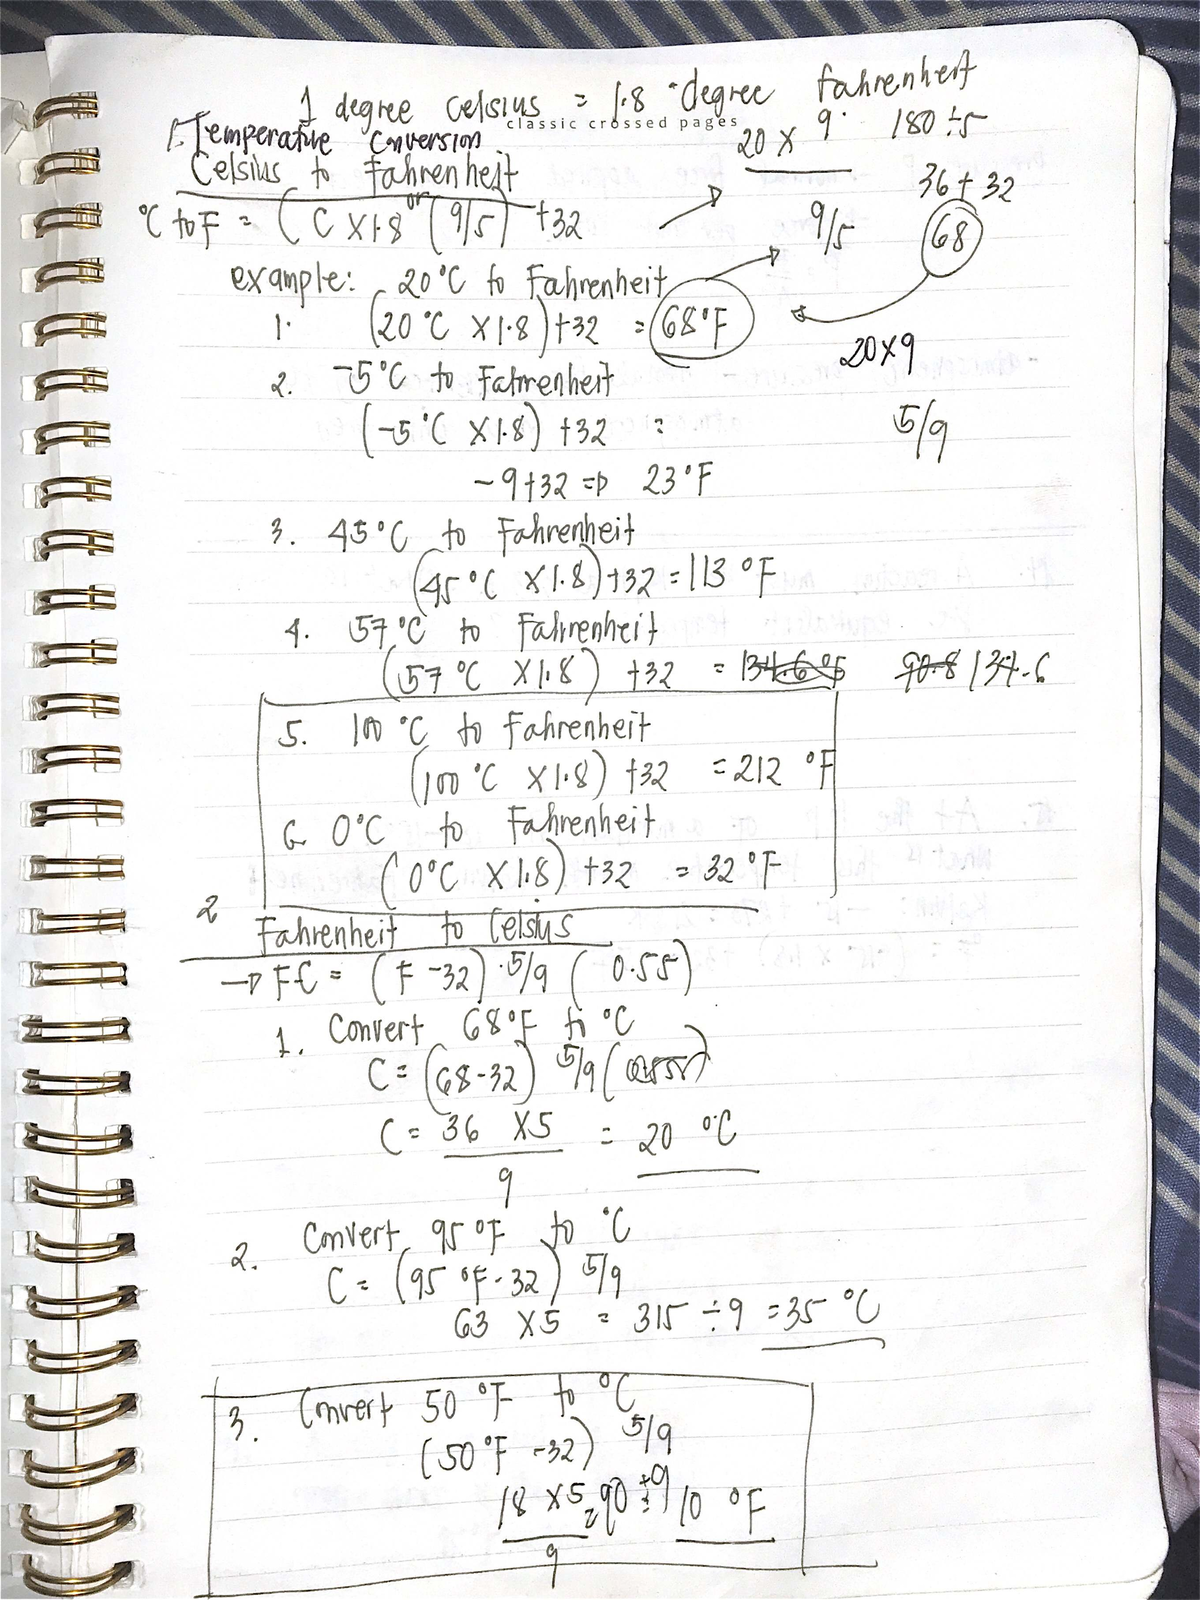 1 degree celsius = 1.8 degree fahrenheit
classic crossed pages
1. Temperature conversion
Celsius to Fahrenheit
°C to F = (C X 1.8 or (9/5) +32
20 X 9 180÷5
9/5 36 + 32
68
example: 20°C to Fahrenheit
1. (20°C X 1.8) +32 = 68°F
20x9
2. -5°C to Fahrenheit
(-5°C X 1.8) +32 =
5/9
-9+32 => 23°F
3. 45°C to Fahrenheit
(45°C X 1.8) +32 = 113 °F
4. 57°C to Fahrenheit
(57°C X 1.8) +32 = 134.6°F 90.8 134.6
5. 100 °C to Fahrenheit
(100 °C X 1.8) +32 = 212 °F
6 0°C to Fahrenheit
(0°C X 1.8) +32 = 32°F
2 Fahrenheit to Celsius
→ F C = (F -32) · 5/9 (0.55)
1. Convert 68°F to °C
C = (68-32) 5/9
C = 36 X5 = 20 °C
9
2. Convert 95 °F to °C
C = (95 °F - 32) 5/9
63 X5 = 315 ÷9 = 35 °C
3. Convert 50 °F to °C
(50°F -32) 5/9
18 X5 = 90 ÷ 9 = 10 °F
9